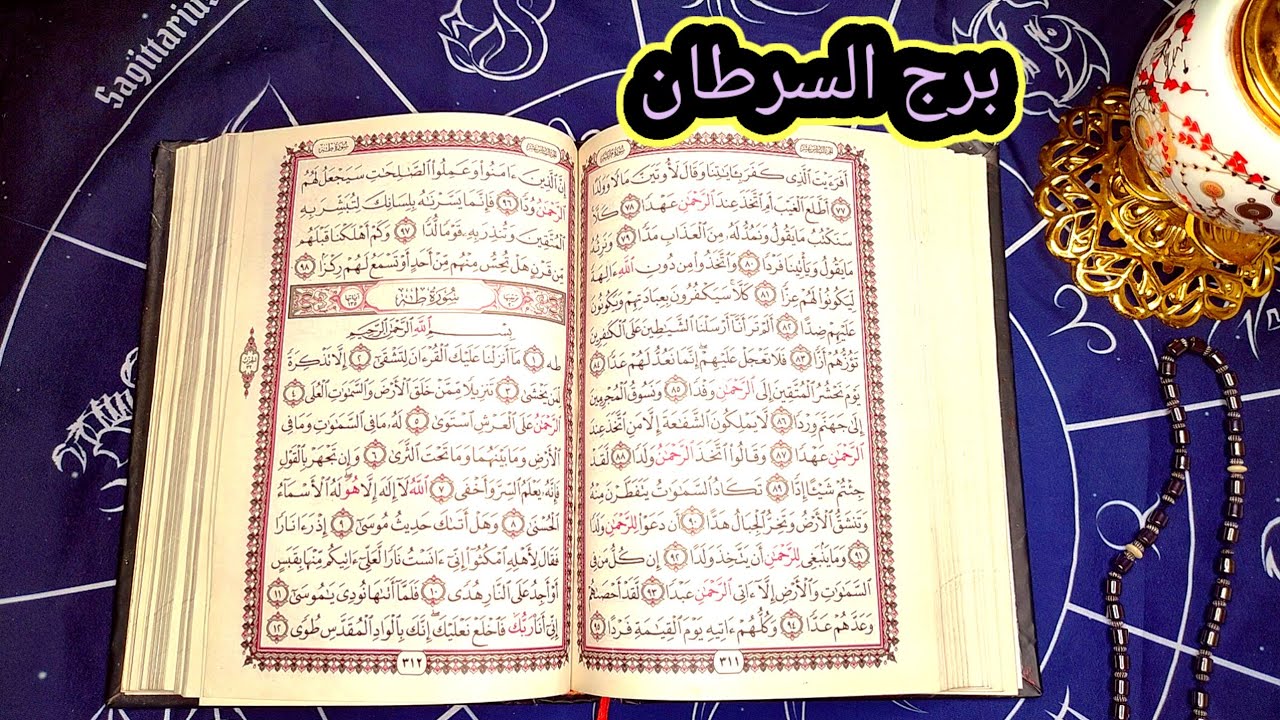 برج السرطان
Sagittarius
أَفَرَءَيْتَ ٱلَّذِى كَفَرَ بِـَٔايَـٰتِنَا وَقَالَ لَأُوتَيَنَّ مَالًا وَوَلَدًا
٧٧ أَطَّلَعَ ٱلْغَيْبَ أَمِ ٱتَّخَذَ عِندَ ٱلرَّحْمَـٰنِ عَهْدًا ٧٨ كَلَّا
سَنَكْتُبُ مَا يَقُولُ وَنَمُدُّ لَهُۥ مِنَ ٱلْعَذَابِ مَدًّا ٧٩ وَنَرِثُهُۥ
مَا يَقُولُ وَيَأْتِينَا فَرْدًا ٨٠ وَٱتَّخَذُوا۟ مِن دُونِ ٱللَّهِ ءَالِهَةً
لِّيَكُونُوا۟ لَهُمْ عِزًّا ٨١ كَلَّا سَيَكْفُرُونَ بِعِبَادَتِهِمْ وَيَكُونُونَ
عَلَيْهِمْ ضِدًّا ٨٢ أَلَمْ تَرَ أَنَّآ أَرْسَلْنَا ٱلشَّيَـٰطِينَ عَلَى ٱلْكَـٰفِرِينَ
تَؤُزُّهُمْ أَزًّا ٨٣ فَلَا تَعْجَلْ عَلَيْهِمْ إِنَّمَا نَعُدُّ لَهُمْ عَدًّا ٨٤
يَوْمَ نَحْشُرُ ٱلْمُتَّقِينَ إِلَى ٱلرَّحْمَـٰنِ وَفْدًا ٨٥ وَنَسُوقُ ٱلْمُجْرِمِينَ
إِلَىٰ جَهَنَّمَ وِرْدًا ٨٦ لَّا يَمْلِكُونَ ٱلشَّفَـٰعَةَ إِلَّا مَنِ ٱتَّخَذَ عِندَ
ٱلرَّحْمَـٰنِ عَهْدًا ٨٧ وَقَالُوا۟ ٱتَّخَذَ ٱلرَّحْمَـٰنُ وَلَدًا ٨٨ لَّقَدْ
جِئْتُمْ شَيْـًٔا إِدًّا ٨٩ تَكَادُ ٱلسَّمَـٰوَٰتُ يَتَفَطَّرْنَ مِنْهُ
وَتَنشَقُّ ٱلْأَرْضُ وَتَخِرُّ ٱلْجِبَالُ هَدًّا ٩٠ أَن دَعَوْا۟ لِلرَّحْمَـٰنِ وَلَدًا
٩١ وَمَا يَنۢبَغِى لِلرَّحْمَـٰنِ أَن يَتَّخِذَ وَلَدًا ٩٢ إِن كُلُّ مَن فِى
ٱلسَّمَـٰوَٰتِ وَٱلْأَرْضِ إِلَّآ ءَاتِى ٱلرَّحْمَـٰنِ عَبْدًا ٩٣ لَّقَدْ أَحْصَىٰهُمْ
وَعَدَّهُمْ عَدًّا ٩٤ وَكُلُّهُمْ ءَاتِيهِ يَوْمَ ٱلْقِيَـٰمَةِ فَرْدًا ٩٥
٣١١
سُورَةُ طه
إِنَّ ٱلَّذِينَ ءَامَنُوا۟ وَعَمِلُوا۟ ٱلصَّـٰلِحَـٰتِ سَيَجْعَلُ لَهُمُ
ٱلرَّحْمَـٰنُ وُدًّا ٩٦ فَإِنَّمَا يَسَّرْنَـٰهُ بِلِسَانِكَ لِتُبَشِّرَ بِهِ
ٱلْمُتَّقِينَ وَتُنذِرَ بِهِۦ قَوْمًا لُّدًّا ٩٧ وَكَمْ أَهْلَكْنَا قَبْلَهُم
مِّن قَرْنٍ هَلْ تُحِسُّ مِنْهُم مِّنْ أَحَدٍ أَوْ تَسْمَعُ لَهُمْ رِكْزًۢا ٩٨
سُورَةُ طه
بِسْمِ ٱللَّهِ ٱلرَّحْمَـٰنِ ٱلرَّحِيمِ
طه ١ مَآ أَنزَلْنَا عَلَيْكَ ٱلْقُرْءَانَ لِتَشْقَىٰٓ ٢ إِلَّا تَذْكِرَةً
لِّمَن يَخْشَىٰ ٣ تَنزِيلًا مِّمَّنْ خَلَقَ ٱلْأَرْضَ وَٱلسَّمَـٰوَٰتِ ٱلْعُلَى ٤
ٱلرَّحْمَـٰنُ عَلَى ٱلْعَرْشِ ٱسْتَوَىٰ ٥ لَهُۥ مَا فِى ٱلسَّمَـٰوَٰتِ وَمَا فِى
ٱلْأَرْضِ وَمَا بَيْنَهُمَا وَمَا تَحْتَ ٱلثَّرَىٰ ٦ وَإِن تَجْهَرْ بِٱلْقَوْلِ
فَإِنَّهُۥ يَعْلَمُ ٱلسِّرَّ وَأَخْفَى ٧ ٱللَّهُ لَآ إِلَـٰهَ إِلَّا هُوَ لَهُ ٱلْأَسْمَآءُ
ٱلْحُسْنَىٰ ٨ وَهَلْ أَتَىٰكَ حَدِيثُ مُوسَىٰٓ ٩ إِذْ رَءَا نَارًا
فَقَالَ لِأَهْلِهِ ٱمْكُثُوٓا۟ إِنِّىٓ ءَانَسْتُ نَارًا لَّعَلِّىٓ ءَاتِيكُم مِّنْهَا بِقَبَسٍ
أَوْ أَجِدُ عَلَى ٱلنَّارِ هُدًى ١٠ فَلَمَّآ أَتَىٰهَا نُودِىَ يَـٰمُوسَىٰٓ ١١
إِنِّىٓ أَنَا۠ رَبُّكَ فَٱخْلَعْ نَعْلَيْكَ إِنَّكَ بِٱلْوَادِ ٱلْمُقَدَّسِ طُوًى ١٢
٣١٢